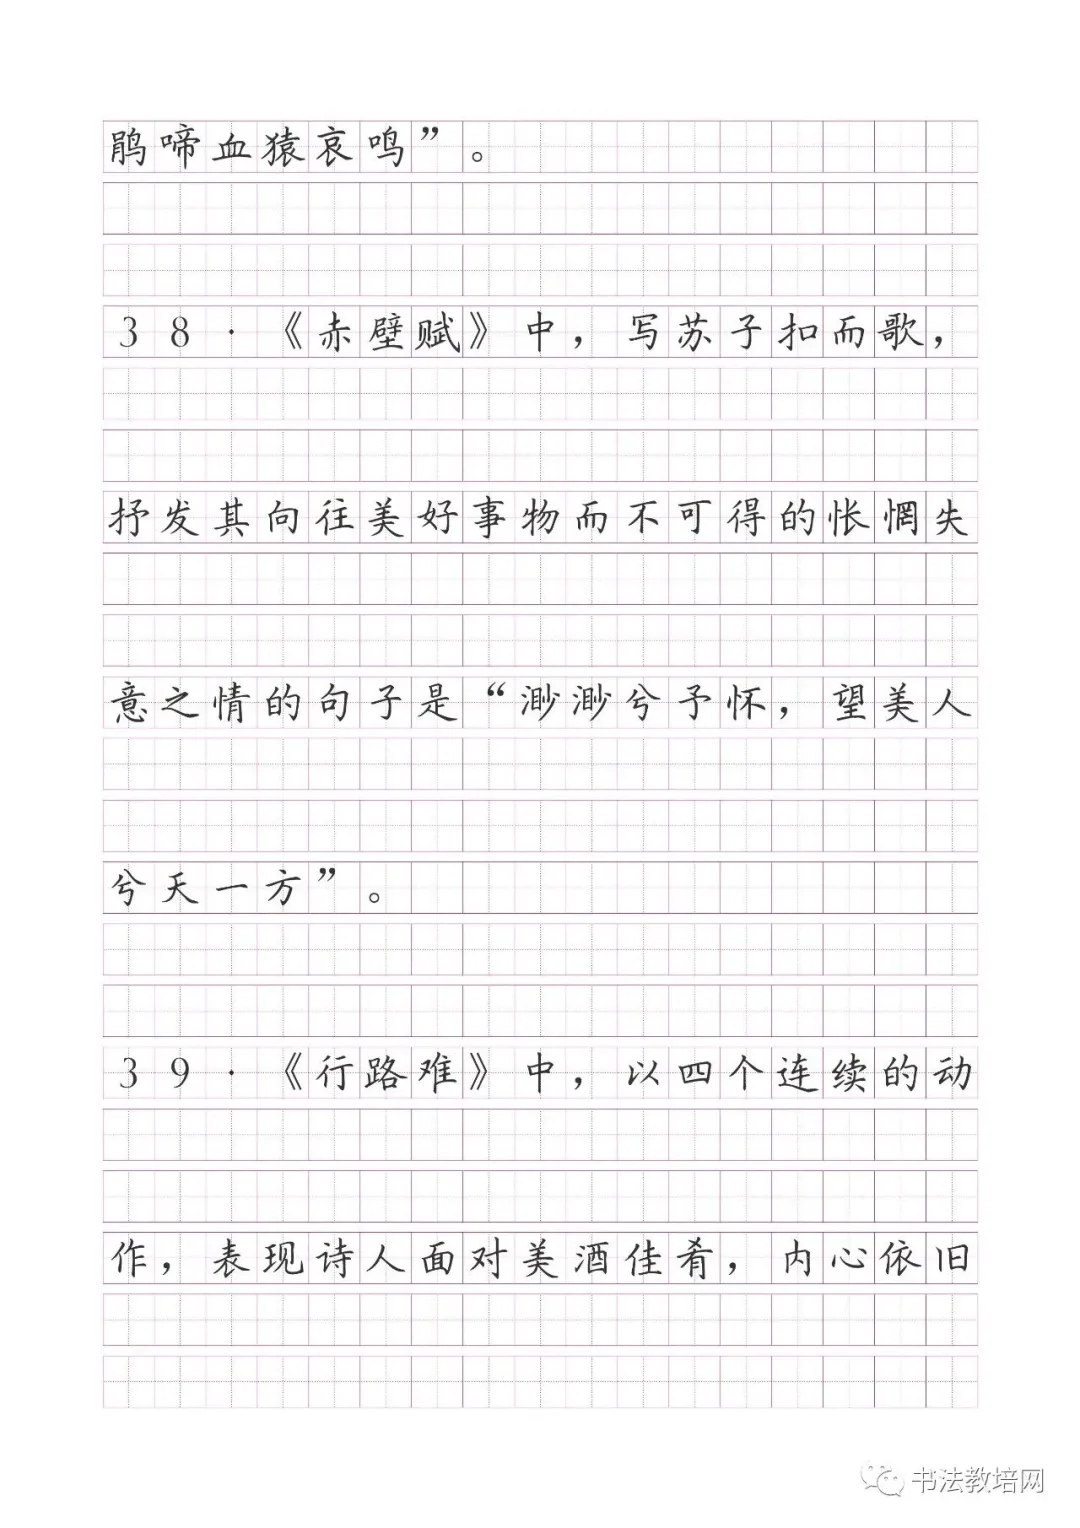 鹃啼血猿哀鸣”。
38.《赤壁赋》中，写苏子扣而歌，
抒发其向往美好事物而不可得的怅惘失
意之情的句子是“渺渺兮予怀，望美人
兮天一方”。
39.《行路难》中，以四个连续的动
作，表现诗人面对美酒佳肴，内心依旧
书法教培网